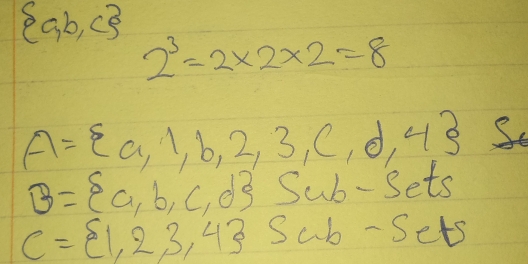 {a,b,c}
2³=2×2×2=8
A={a,1,b,2,3,c,d,4}
B={a,b,c,d} Sub-Sets
C={1,2,3,4} Sub-Sets